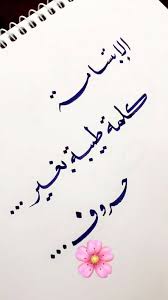 الإبتسامة
كلمة طيبة بغير ...
حروف ...